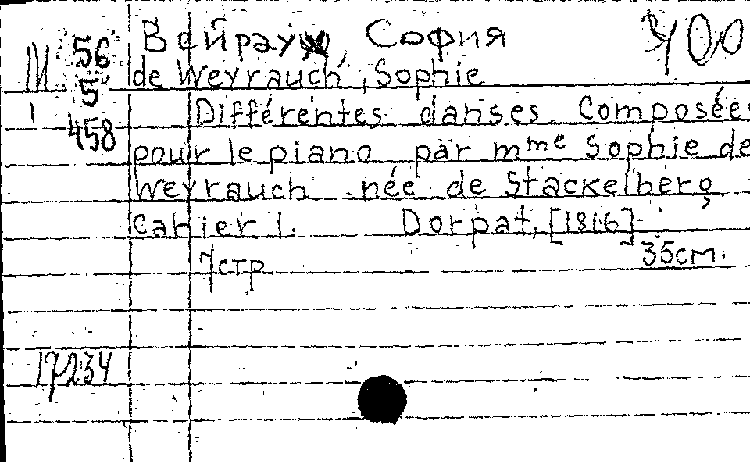 М 56 Вейраух, София
5 de Weyrauch, Sophie
458 Différentes danses Composée
pour le piano par mme Sophie de
Weyrauch née de Stackelberg
Cahier 1. Dorpat, [1816]
7стр 35см.
17234